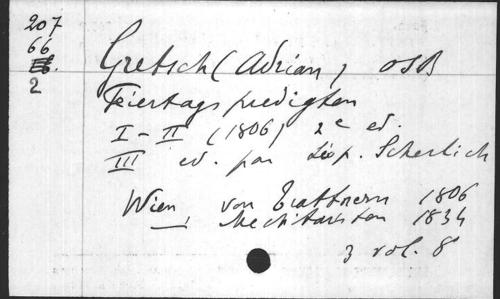 207
66
2
Gretsch (Adrian) OSB
Feiertagspredigten
I-II (1806) 2e ed.
III ed. par Léop. Scherlich
Wien, von Trattnern 1806
—, Mechitaristen 1834
3 vol. 8°